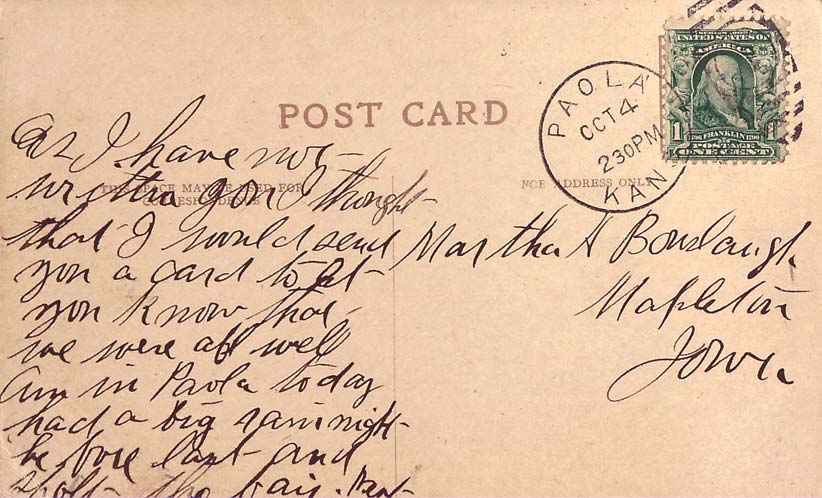 POST CARD
THIS SPACE MAY BE USED FOR
CORRESPONDENCE
FOR ADDRESS ONLY
PAOLA
OCT 4
230PM
KAN
SERIES 1902
UNITED STATES OF
AMERICA
1 1790 FRANKLIN 1790 1
POSTAGE
ONE CENT
as I have not
written you I thought
that I would send
you a card to let
you know that
we were all well
am in Paola today
had a big rain night
before last and
spoilt the fair.
Martha A
Mapleton
Iowa